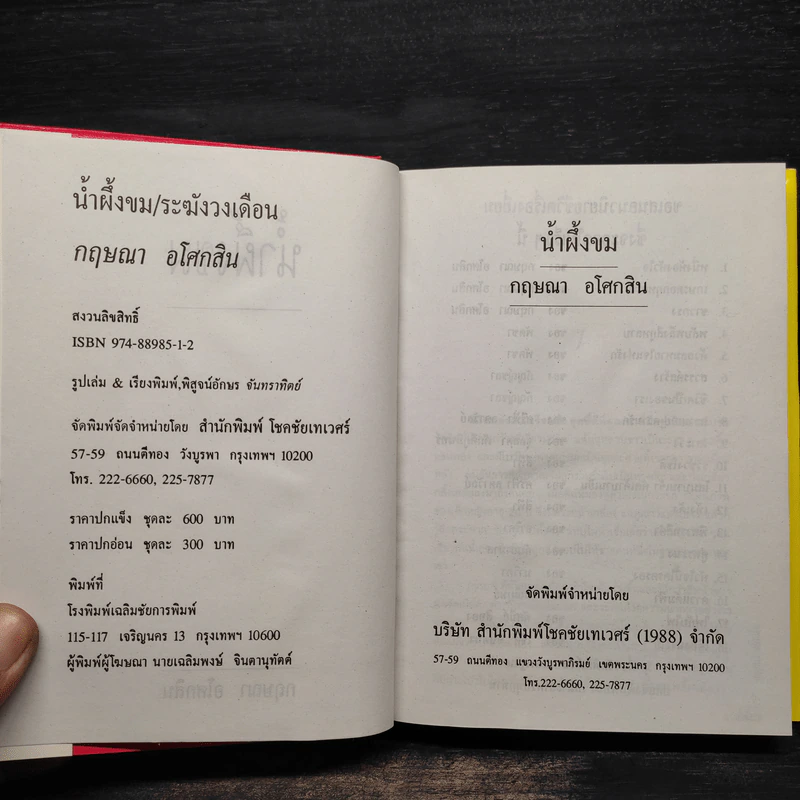 น้ำผึ้งขม/ระฆังวงเดือน
กฤษณา อโศกสิน
สงวนลิขสิทธิ์
ISBN 974-88985-1-2
รูปเล่ม & เรียงพิมพ์,พิสูจน์อักษร จันทราทิตย์
จัดพิมพ์จัดจำหน่ายโดย สำนักพิมพ์ โชคชัยเทเวศร์
57-59 ถนนตีทอง วังบูรพา กรุงเทพฯ 10200
โทร. 222-6660, 225-7877
ราคาปกแข็ง ชุดละ 600 บาท
ราคาปกอ่อน ชุดละ 300 บาท
พิมพ์ที่
โรงพิมพ์เฉลิมชัยการพิมพ์
115-117 เจริญนคร 13 กรุงเทพฯ 10600
ผู้พิมพ์ผู้โฆษณา นายเฉลิมพงษ์ จินดานุทัตต์
น้ำผึ้งขม
กฤษณา อโศกสิน
จัดพิมพ์จำหน่ายโดย
บริษัท สำนักพิมพ์โชคชัยเทเวศร์ (1988) จำกัด
57-59 ถนนตีทอง แขวงวังบูรพาภิรมย์ เขตพระนคร กรุงเทพฯ 10200
โทร.222-6660, 225-7877